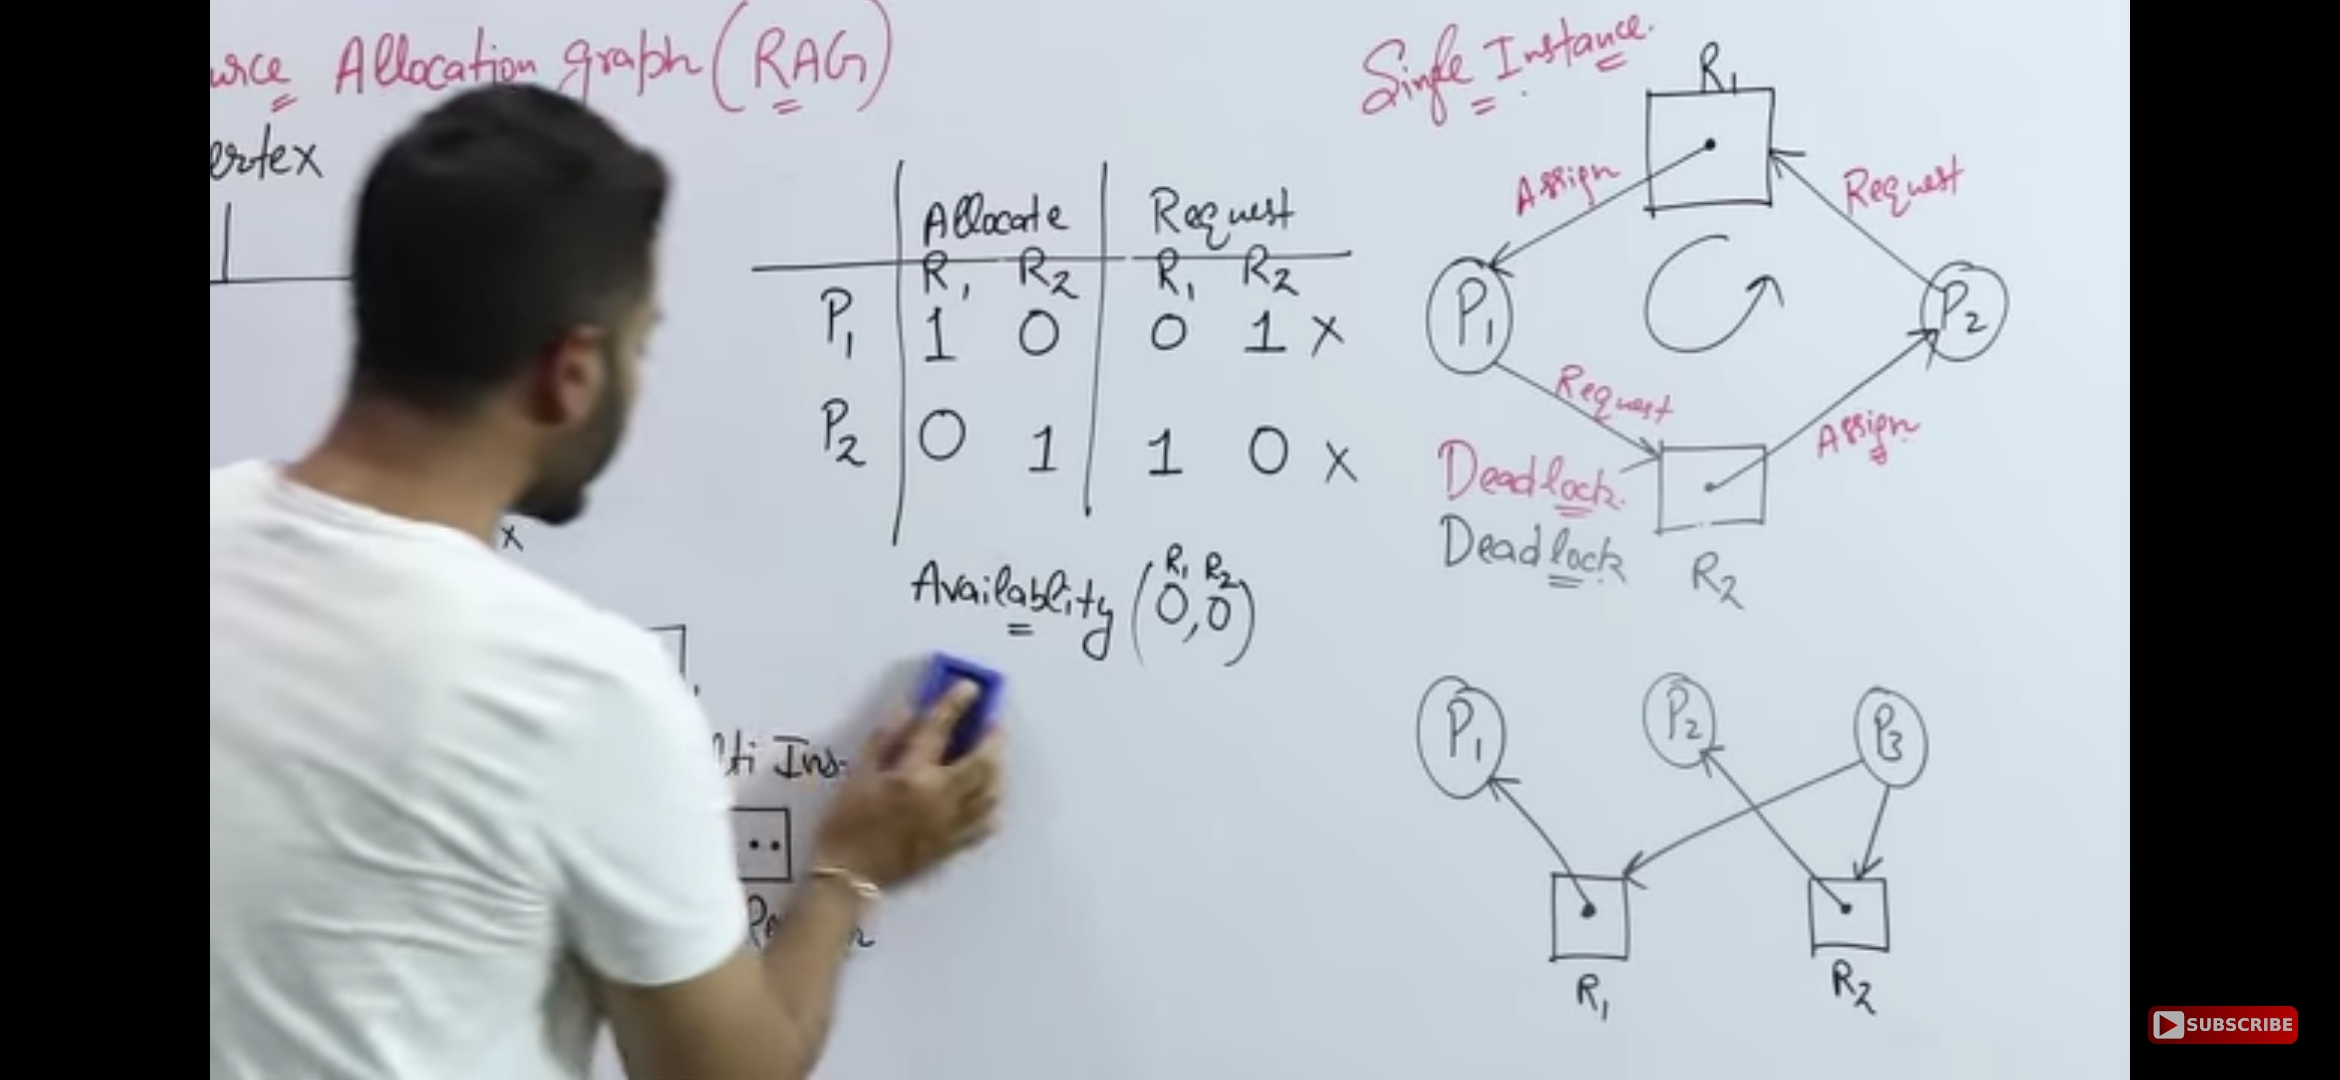 Allocation graph (RAG)
Allocate Request
R1 R2 R1 R2
P1 1 0 0 1 x
P2 0 1 1 0 x
Availablity (0,0)
R1 R2
x
Single Instance.
R1
Assign
Request
P1
P2
Request
Assign
Deadlock.
Deadlock
R2
P1
P2
P3
R1
R2
SUBSCRIBE